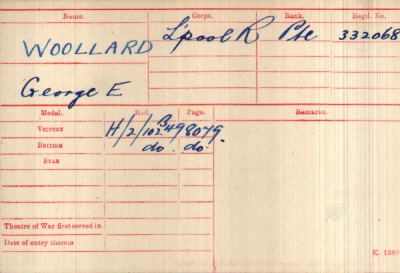 Name. Corps. Rank. Regtl. No.
WOOLLARD L'pool R Pte 332068
George E
Medal. Roll. Page. Remarks.
VICTORY H/2/102 B49 8079.
BRITISH do. do.
STAR
Theatre of War first served in
Date of entry therein
K. 1380